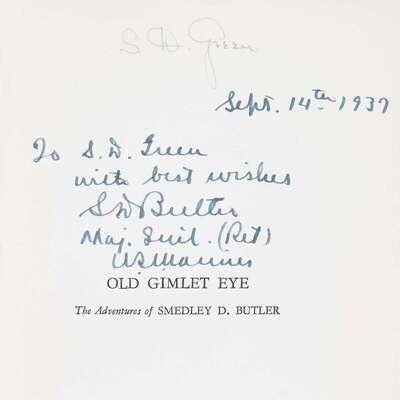 S. D. Green
Sept. 14th 1937
To S. D. Green
with best wishes
S D Butler
Maj. Genl. (Ret)
U.S. Marines
OLD GIMLET EYE
The Adventures of SMEDLEY D. BUTLER